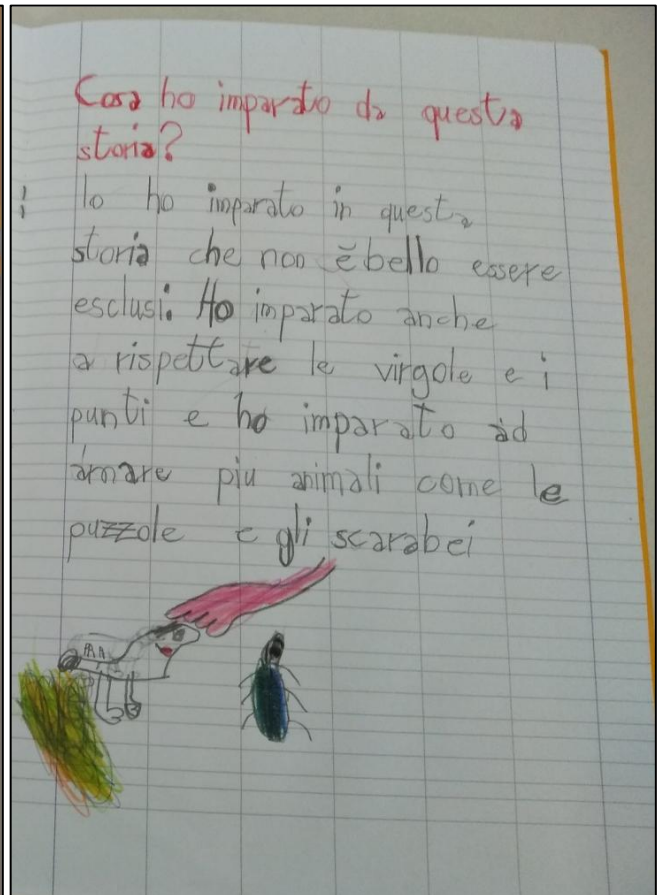 Cosa ho imparato da questa
storia?
Io ho imparato in questa
storia che non è bello essere
esclusi. Ho imparato anche
a rispettare le virgole e i
punti e ho imparato ad
amare più animali come le
puzzole e gli scarabei